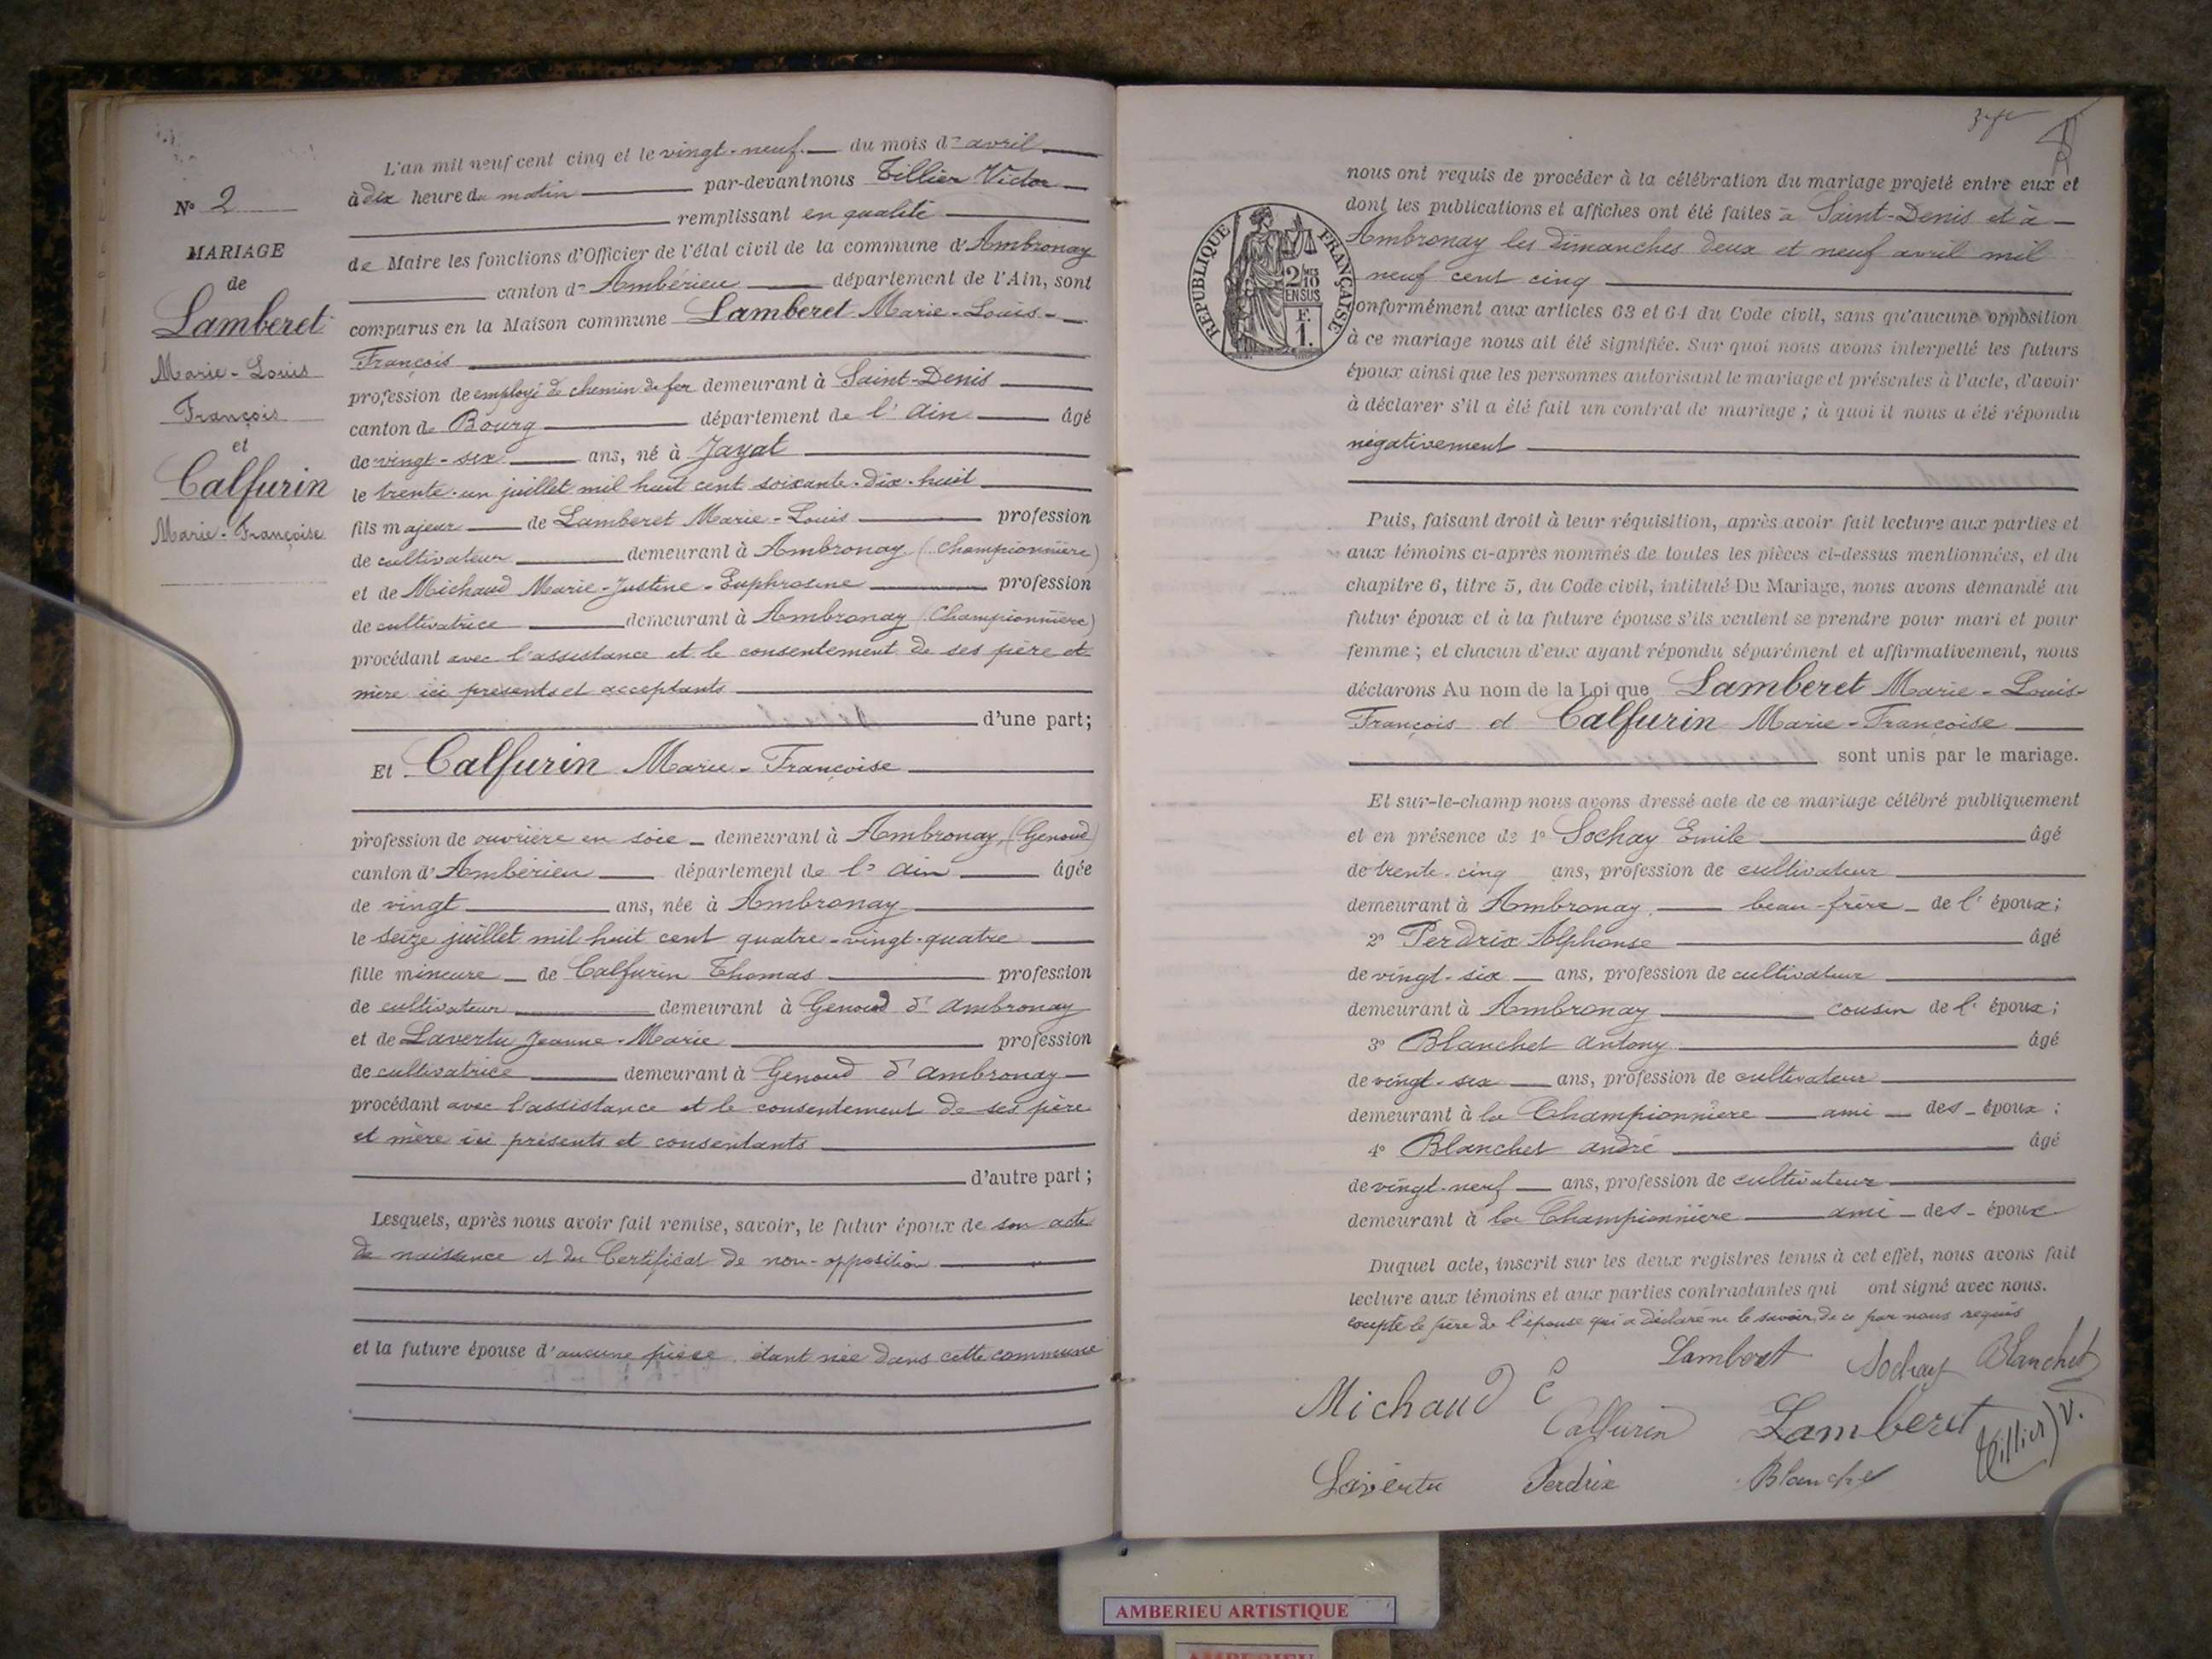 N° 2
MARIAGE
de
Lamberet
Marie-Louis
François
et
Calfurin
Marie-Françoise
L'an mil neuf cent cinq et le vingt-neuf du mois d' avril
à dix heure du matin par-devant nous Tillier Victor
remplissant en qualité
de Maire les fonctions d'Officier de l'état civil de la commune d'Ambronay
canton d' Ambérieu département de l'Ain, sont
comparus en la Maison commune Lamberet Marie-Louis-
François
profession de employé de chemin de fer demeurant à Saint-Denis
canton de Bourg département de l' Ain âgé
de vingt-six ans, né à Jayat
le trente-un juillet mil huit cent soixante-dix-huit
fils majeur de Lamberet Marie-Louis profession
de cultivateur demeurant à Ambronay (Championnière)
et de Michaud Marie-Justine-Euphrosine profession
de cultivatrice demeurant à Ambronay (Championnière)
procédant avec l'assistance et le consentement de ses père et
mère ici présents et acceptants
d'une part;
Et Calfurin Marie-Françoise
profession de ouvrière en soie demeurant à Ambronay, (Genoud)
canton d'Ambérieu département de l' Ain âgée
de vingt ans, née à Ambronay
le seize juillet mil huit cent quatre-vingt-quatre
fille mineure de Calfurin Thomas profession
de cultivateur demeurant à Genoud d' Ambronay
et de Lavertu Jeanne-Marie profession
de cultivatrice demeurant à Genoud d' Ambronay
procédant avec l'assistance et le consentement de ses père
et mère ici présents et consentants
d'autre part;
Lesquels, après nous avoir fait remise, savoir, le futur époux de son acte
de naissance et du Certificat de non-opposition
et la future épouse d'aucune pièce, étant née dans cette commune
RÉPUBLIQUE FRANÇAISE
2/10
EN SUS
F.
1.
nous ont requis de procéder à la célébration du mariage projeté entre eux et
dont les publications et affiches ont été faites à Saint-Denis et à
Ambronay les Dimanches deux et neuf avril mil
neuf cent cinq
conformément aux articles 63 et 64 du Code civil, sans qu'aucune opposition
à ce mariage nous ait été signifiée. Sur quoi nous avons interpellé les futurs
époux ainsi que les personnes autorisant le mariage et présentes à l'acte, d'avoir
à déclarer s'il a été fait un contrat de mariage; à quoi il nous a été répondu
négativement
Puis, faisant droit à leur réquisition, après avoir fait lecture aux parties et
aux témoins ci-après nommés de toutes les pièces ci-dessus mentionnées, et du
chapitre 6, titre 5, du Code civil, intitulé Du Mariage, nous avons demandé au
futur époux et à la future épouse s'ils veulent se prendre pour mari et pour
femme; et chacun d'eux ayant répondu séparément et affirmativement, nous
déclarons Au nom de la Loi que Lamberet Marie-Louis-
François et Calfurin Marie-Françoise
sont unis par le mariage.
Et sur-le-champ nous avons dressé acte de ce mariage célébré publiquement
et en présence de 1° Sochay Emile âgé
de trente-cinq ans, profession de cultivateur
demeurant à Ambronay beau-frère de l' époux;
2° Perdrix Alphonse âgé
de vingt-six ans, profession de cultivateur
demeurant à Ambronay cousin de l' époux;
3° Blanchet Antony âgé
de vingt-six ans, profession de cultivateur
demeurant à la Championnière ami des époux;
4° Blanchet André âgé
de vingt-neuf ans, profession de cultivateur
demeurant à la Championnière ami des époux
Duquel acte, inscrit sur les deux registres tenus à cet effet, nous avons fait
lecture aux témoins et aux parties contractantes qui ont signé avec nous.
excepté le père de l'épouse qui a déclaré ne le savoir, de ce par nous requis
Lamberet Sochay Blanchet
Michaud E
Calfurin Lamberet Tillier V.
Lavertu Perdrix Blanchet
AMBERIEU ARTISTIQUE
AMBERIEU